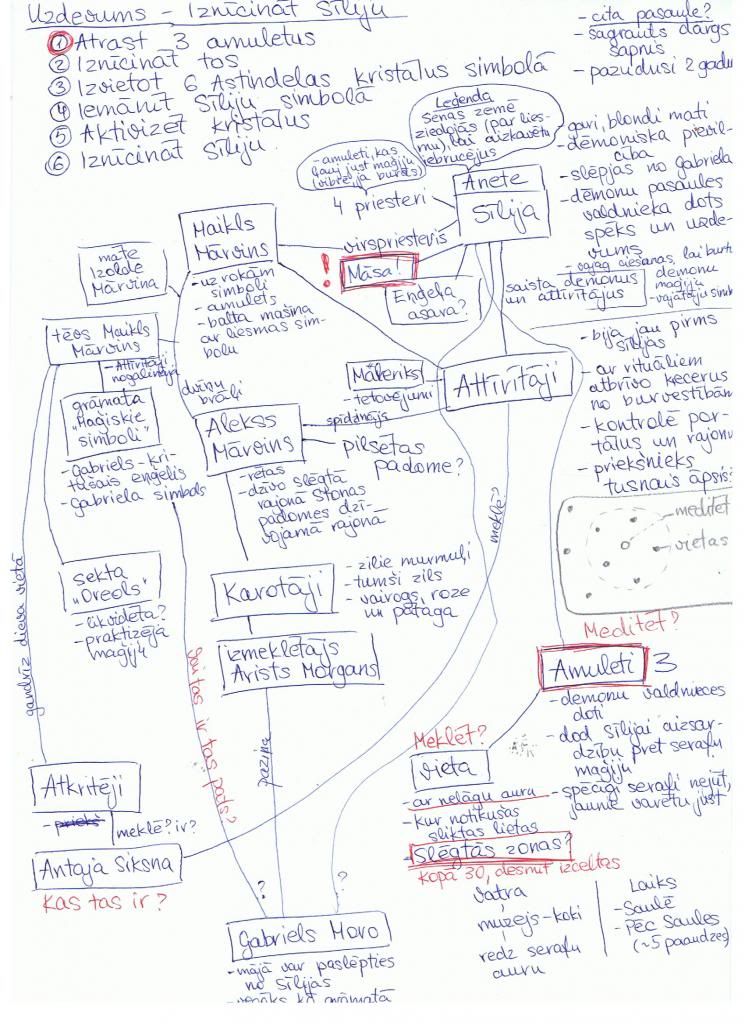 Uzdevums - Iznīcināt Sīliju
① Atrast 3 amuletus
② Iznīcināt tos
③ Izvietot 6 Astindelas kristālus simbolā
④ Iemānīt Sīliju simbolā
⑤ Aktivizēt kristālus
⑥ Iznīcināt Sīliju
- cita pasaule?
- sagrauts dārgs
sapnis
- pazudusi 2 gadu
Leģenda
Senas zemē
ziedojās (par lies-
mu), lai aizkavētu
iebrucējus
- amuleti, kas
ļauj just maģiju
(vibrē, ja burts)
4 priesteri
Anete
Sīlija
- gari, blondi mati
- dēmoniska pievil-
cība
- slēpjas no Gabriela
- dēmonu pasaules
valdnieka dots
spēks un uzde-
vums
- vajag ciešanas, lai burt
dēmonu
maģiju
- vajātāju simb
virspriesteris
! Māsa!
Eņģeļa
asara?
saista dēmonus
un attīrītājus
māte
Izolde
Mārvina
Maikls
Mārvins
- uz rokām
simboli
- amulets
- balta mašīna
ar liesmas sim-
bolu
tēvs Maikls
Mārvins
- Attīrītāji
nogalināja
dvīņu
brāļi
grāmata
"Maģiskie
simboli"
- Gabriels - kri-
tušais eņģelis
- Gabriela simbols
Alekss
Mārvins
- rētas
- dzīvo slēgtā
rajonā Stonas
padomes dzī-
vojamā rajonā
Māteriks
- tetovējumi
spīdzinājs
- pilsētas
padome?
Attīrītāji
- bija jau pirms
Sīlijas
- ar rituāliem
atbrīvo ķecerus
no burvestībām
- kontrolē por-
tālus un rajonu
- priekšnieks
tusnais āpsis?
meditēt
vietas
meklē?
sekta
"Oreols"
- likvidēta?
- praktizēja
maģiju
Karotāji
- zilie murmuļi
- tumši zils
- vairogs, roze
un pātaga
izmeklētājs
Arists Morgans
gandrīz dieva vietā
vai tas ir tas pats?
pazina
Meditēt?
Amuleti 3
- dēmonu valdnieces
doti
- dod Sīlijai aizsar-
dzību pret serafu
maģiju
- spēcīgi serafi nejūt,
jaunie varētu just
Meklēt?
vieta
- ar nelāgu auru
- kur notikušas
sliktas lietas
- Slēgtās zonas?
kopā 30, desmit izceltas
vatra
mūzejs - koki
redz serafu
auru
Laiks
- Saulē
- Pēc Saules
(~5 paaudzes)
Atkritēji
- priekš
meklē? ir?
Antaja Siksna
Kas tas ir?
?
?
Gabriels Moro
- mājā var paslēpties
no Sīlijas